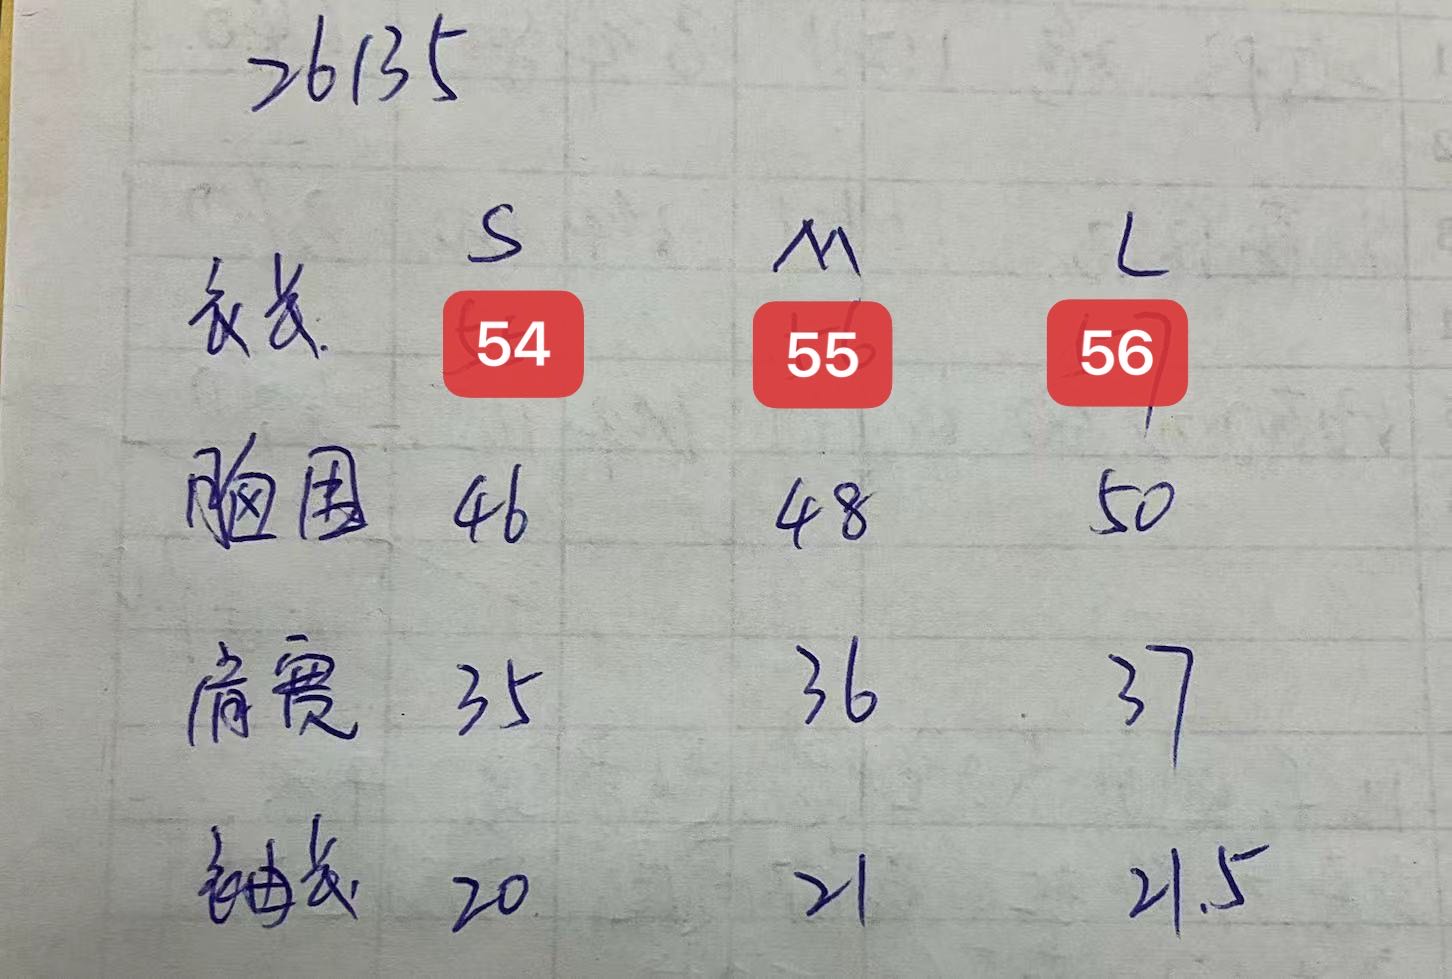 26135
S M L
衣长. 54 55 56
胸围 46 48 50
肩宽 35 36 37
袖长. 20 21 21.5